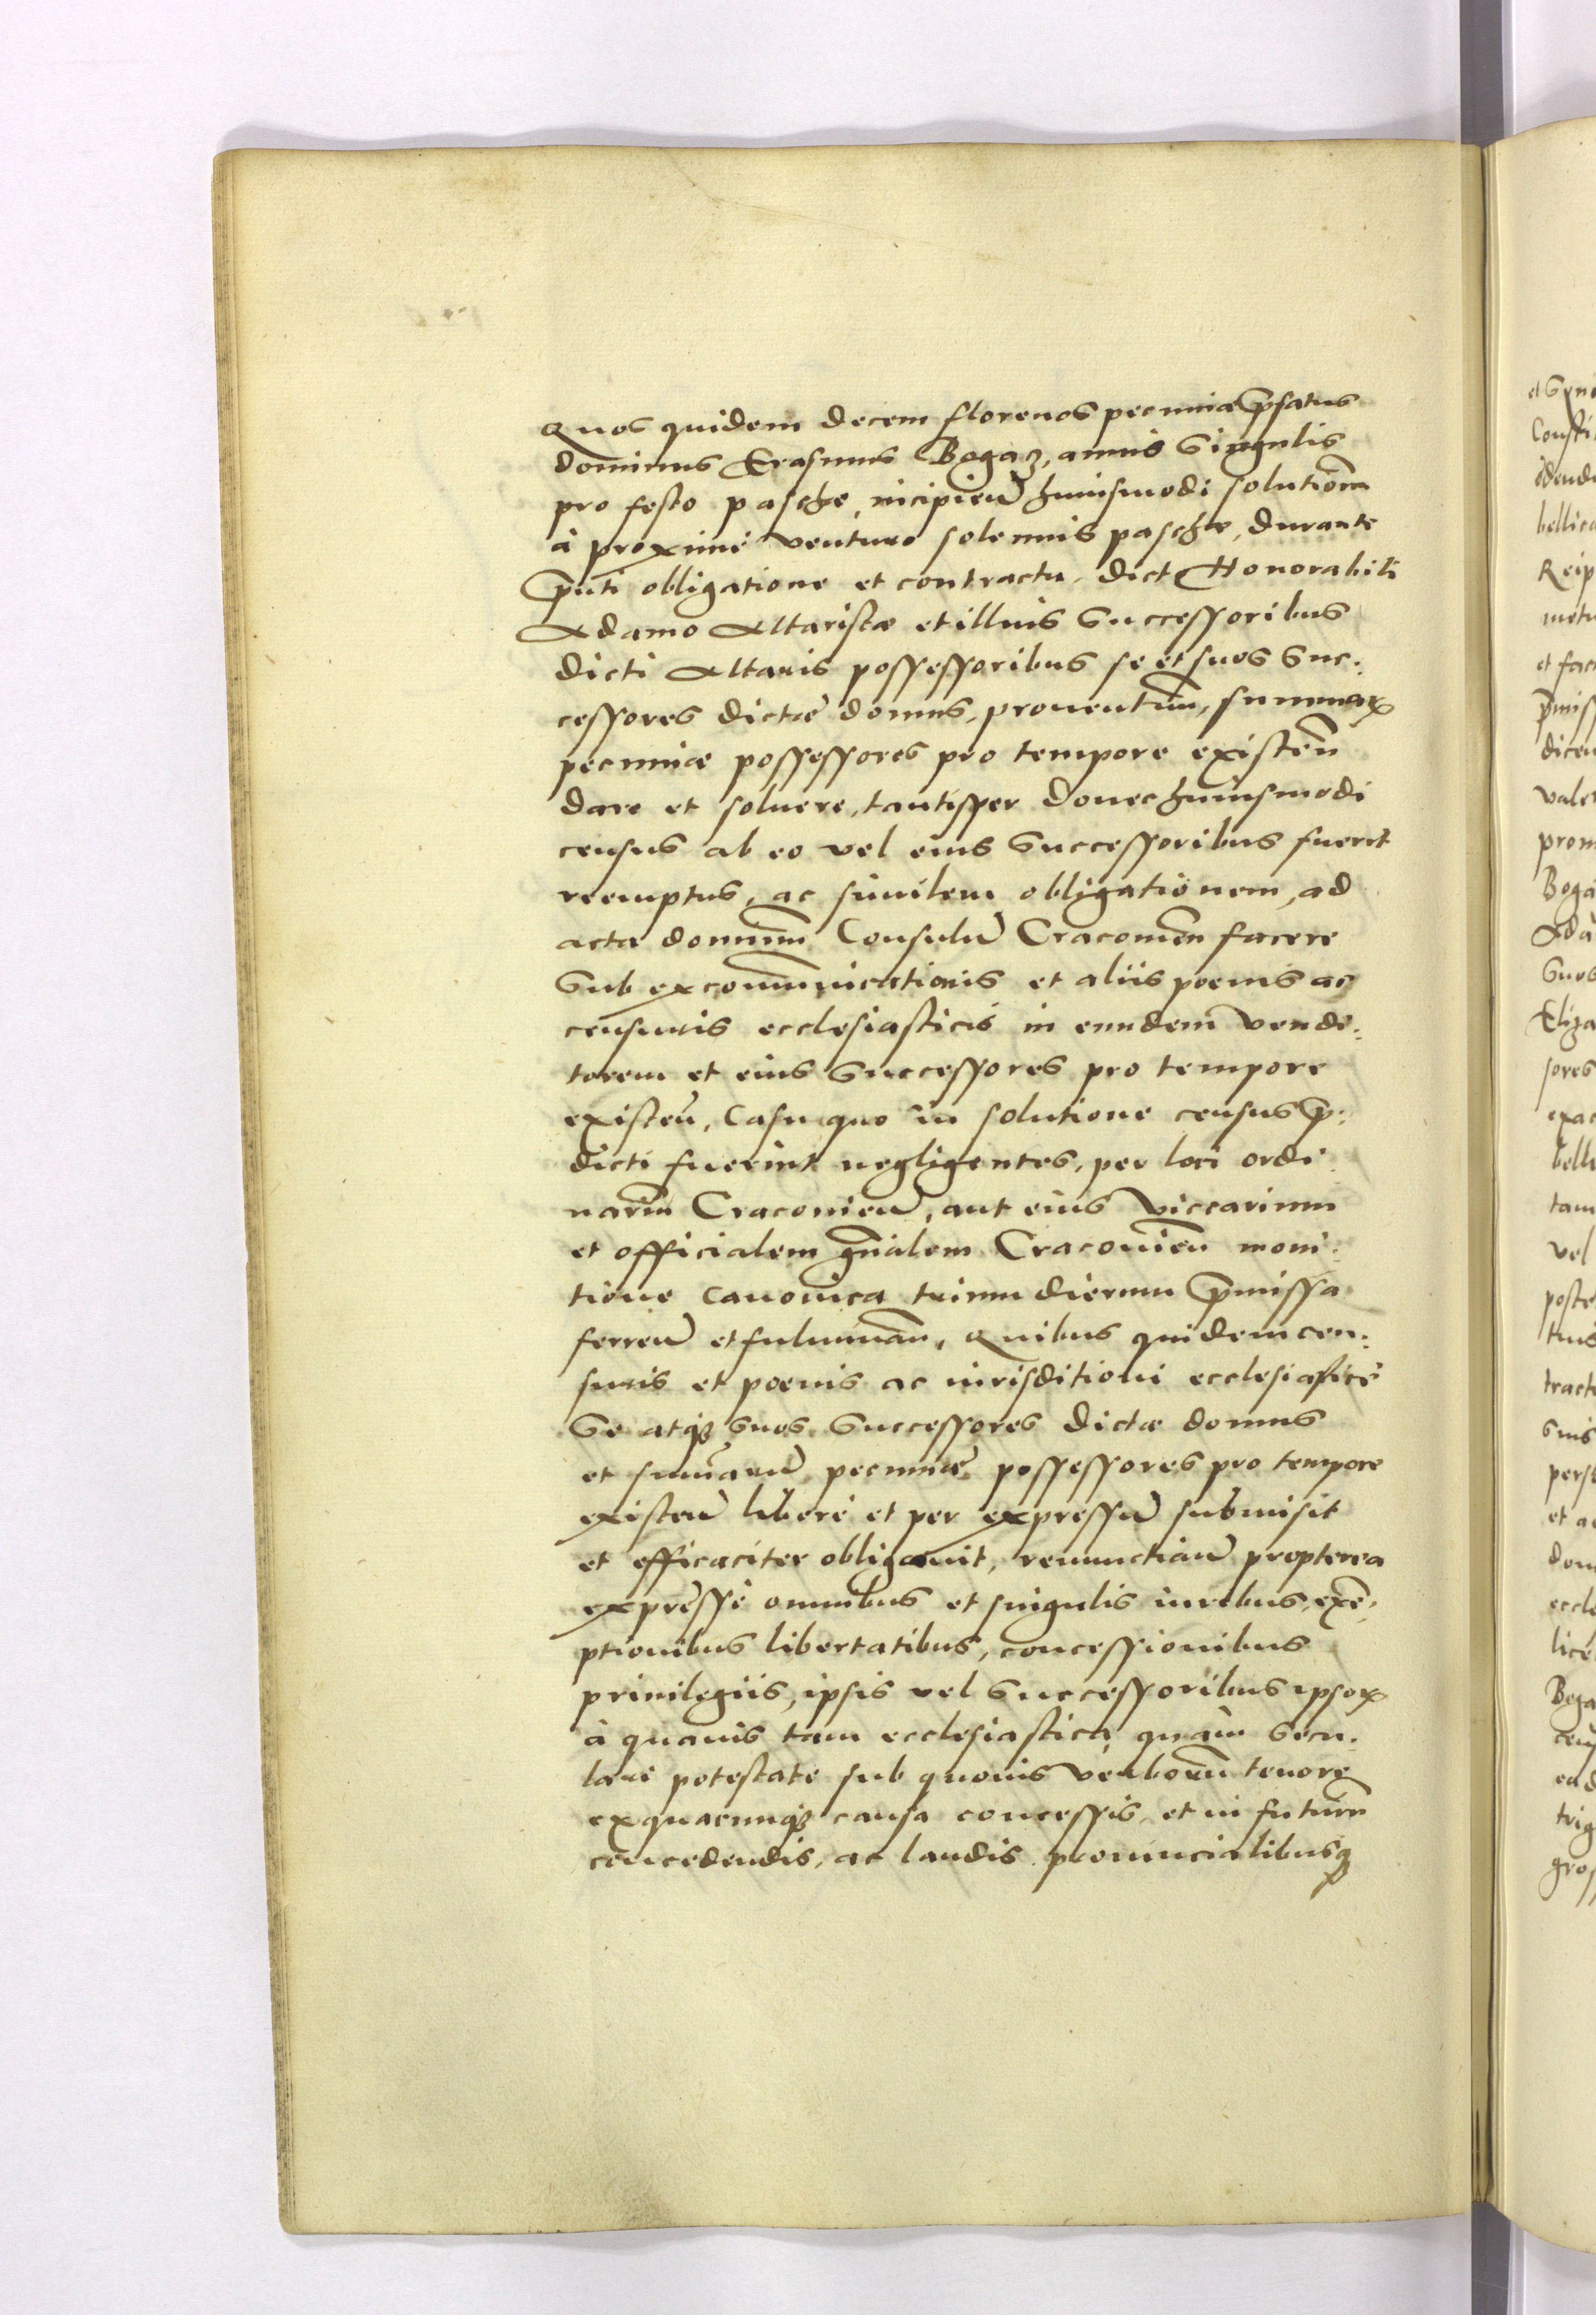 Quos quidem decem florenos pecuniæ p̃fatus
dominus Erasmus Bogacz, annis singulis
pro festo paschæ, incipieñ huiusmodi solutiõem
à proximè venturo solennis paschæ, durante
p̃nti obligatione et contractu, dict Honorabili
Adamo Altaristæ et illius Successoribus
dicti Altaris possessoribus se et suos Suc:
cessores dictæ domus, prouentuũ, summaꝝ
pecuniæ possessores pro tempore existeñ
dare et soluere, tantisper donec huiusmodi
census ab eo vel eius Successoribus fuerit
reemptus, ac similem obligationem, ad
acta dominũ Consulũ Cracouieñ facere
Sub excommunicationis et aliis poenis ac
censuris ecclesiasticis in eundem vendi:
torem et eius Successores pro tempore
existeñ, Casu quo in solutione census p̃:
dicti fuerint negligentes, per loci ordi
nariũ Cracouieñ, aut eius Viccarium
et officialem gñalem Cracouieñ moni:
tione canonica trium dierum p̃missa
ferreñ et fulminañ, Quibus quidem cen:
suris et poenis ac iurisditioni ecclesiasticè
Se atqꝫ suos Successores dictæ domus
et summarũ pecuniæ possessores pro tempore
existeñ liberè et per expressũ submisit
et efficaciter obligauit, renunctiañ propterea
expressè omnibus et singulis iuribus, exce:
ptionibus libertatibus, concessionibus
priuilegiis, ipsis vel Successoribus ipsoꝝ
à quauis tam ecclesiastica quàm secu:
lari potestate sub quouis verborũ tenore
ex quacunqꝫ causa concessis, et in futurũ
concedendis, ac laudis prouincialibusqꝫ